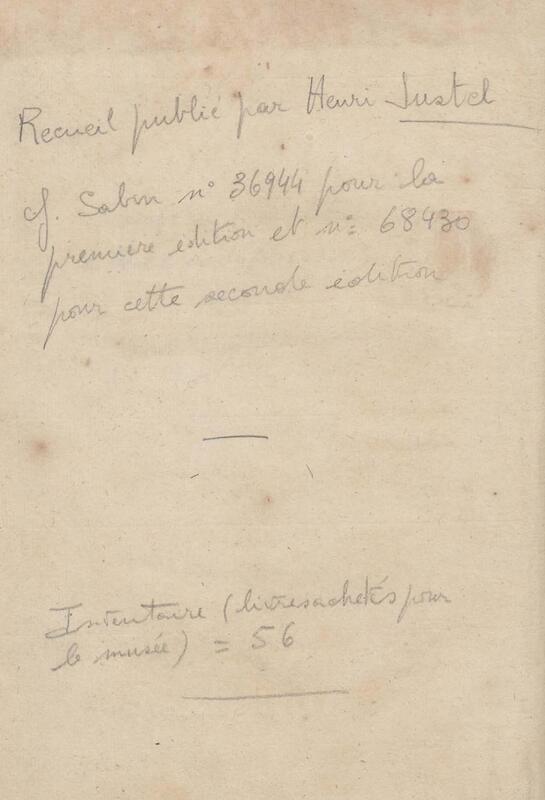 Recueil publié par Henri Justel
cf. Sabin n° 36944 pour la
première édition et n° 68430
pour cette seconde édition
Inventaire (livres achetés pour
le musée) = 56